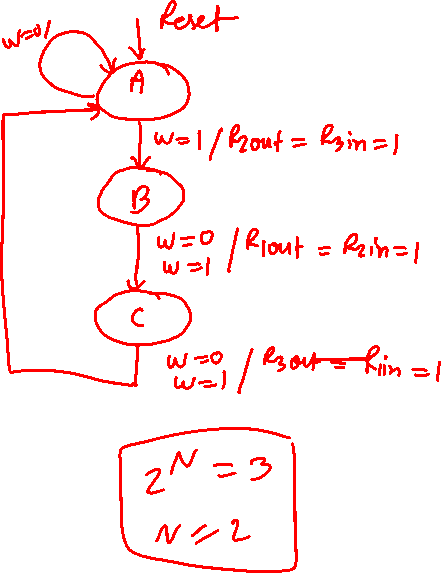 Reset
w=0/
A
w=1 / R2out = R3in = 1
B
w=0 / R1out = R2in = 1
w=1
C
w=0 / R3out = R1in = 1
w=1
2^N = 3
N = 2